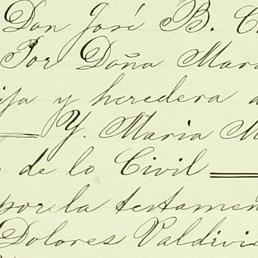 Don José B. C
Por Doña Mara
ija y heredera a
Y. Maria M
de lo Civil
por la testamen
Dolores Valdivie